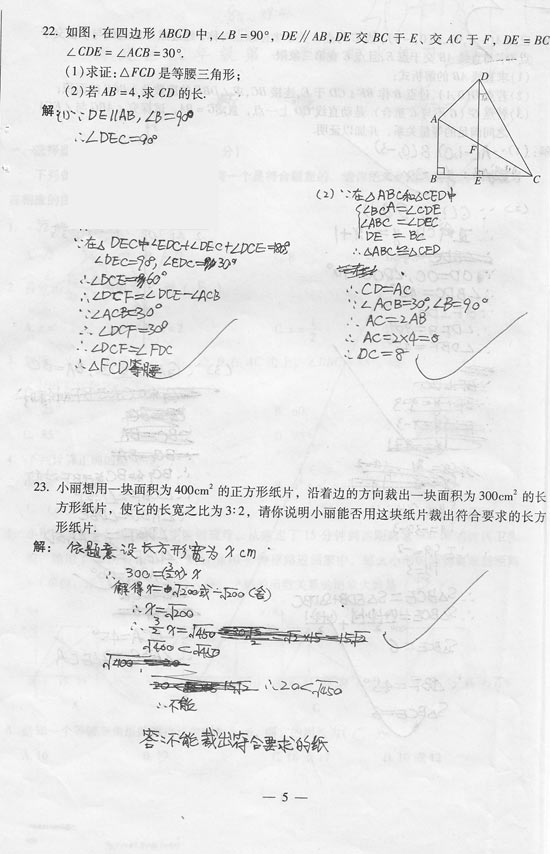 22. 如图,在四边形 ABCD 中,∠B=90°,DE∥AB,DE 交 BC 于 E、交 AC 于 F,DE=BC
∠CDE=∠ACB=30°.
(1)求证:△FCD 是等腰三角形;
(2)若 AB=4,求 CD 的长.
D
A
F
B
E
C
解 (1)∵DE∥AB,∠B=90°
∴∠DEC=90°
∵在△DEC中∠EDC+∠DEC+∠DCE=180°
∠DEC=90°,∠EDC=30°
∴∠DCE=60°
∴∠DCF=∠DCE-∠ACB
∵∠ACB=30°
∴∠DCF=30°
∴∠DCF=∠FDC
∴△FCD等腰
(2)∵在△ABC和△CED中
∠BCA=∠CDE
∠ABC=∠DEC
DE=BC
∴△ABC≌△CED
∴CD=AC
∵∠ACB=30°,∠B=90°
∴AC=2AB
∴AC=2×4=8
∴DC=8
23. 小丽想用一块面积为 400cm² 的正方形纸片,沿着边的方向裁出一块面积为 300cm² 的长
方形纸片,使它的长宽之比为 3:2,请你说明小丽能否用这块纸片裁出符合要求的长方
形纸片.
解: 依题意设长方形宽为x cm
∴300=(3/2x)x
解得x=√200或-√200(舍)
∴x=√200
∴3/2x=√450
√400<√450
∴20<√450
∴不能
答:不能裁出符合要求的纸
— 5 —